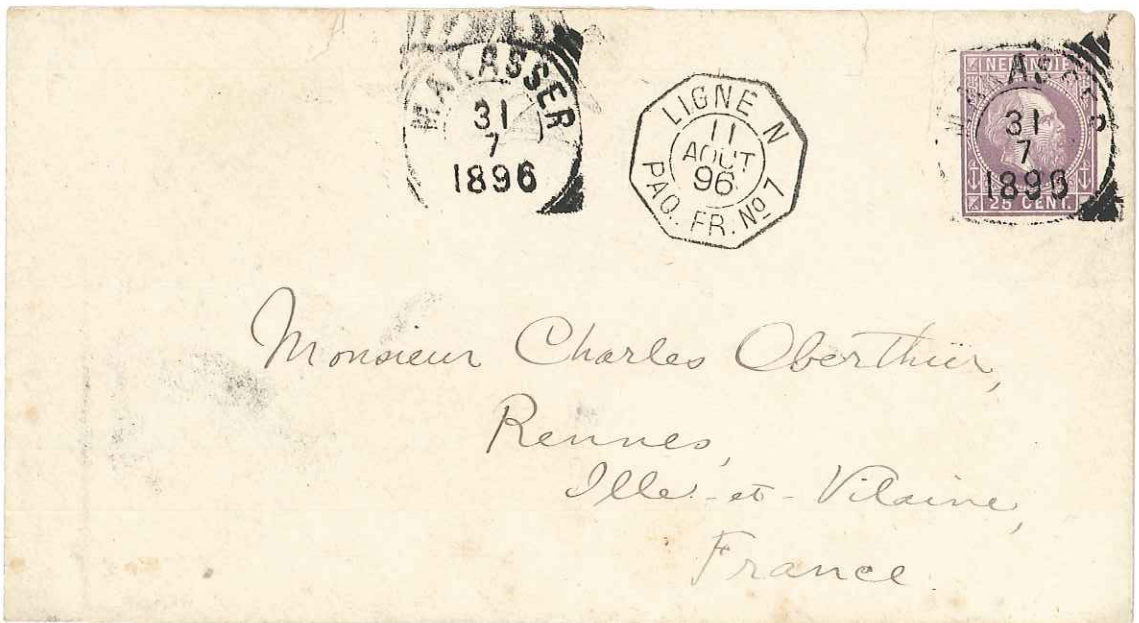 MAKASSER
31
7
1896
LIGNE N
11
AOUT
96
PAQ. FR. No 7
NED. INDIE
MAKASSER
31
7
1896
25 CENT.
Monsieur Charles Oberthür,
Rennes,
Ille-et-Vilaine,
France.